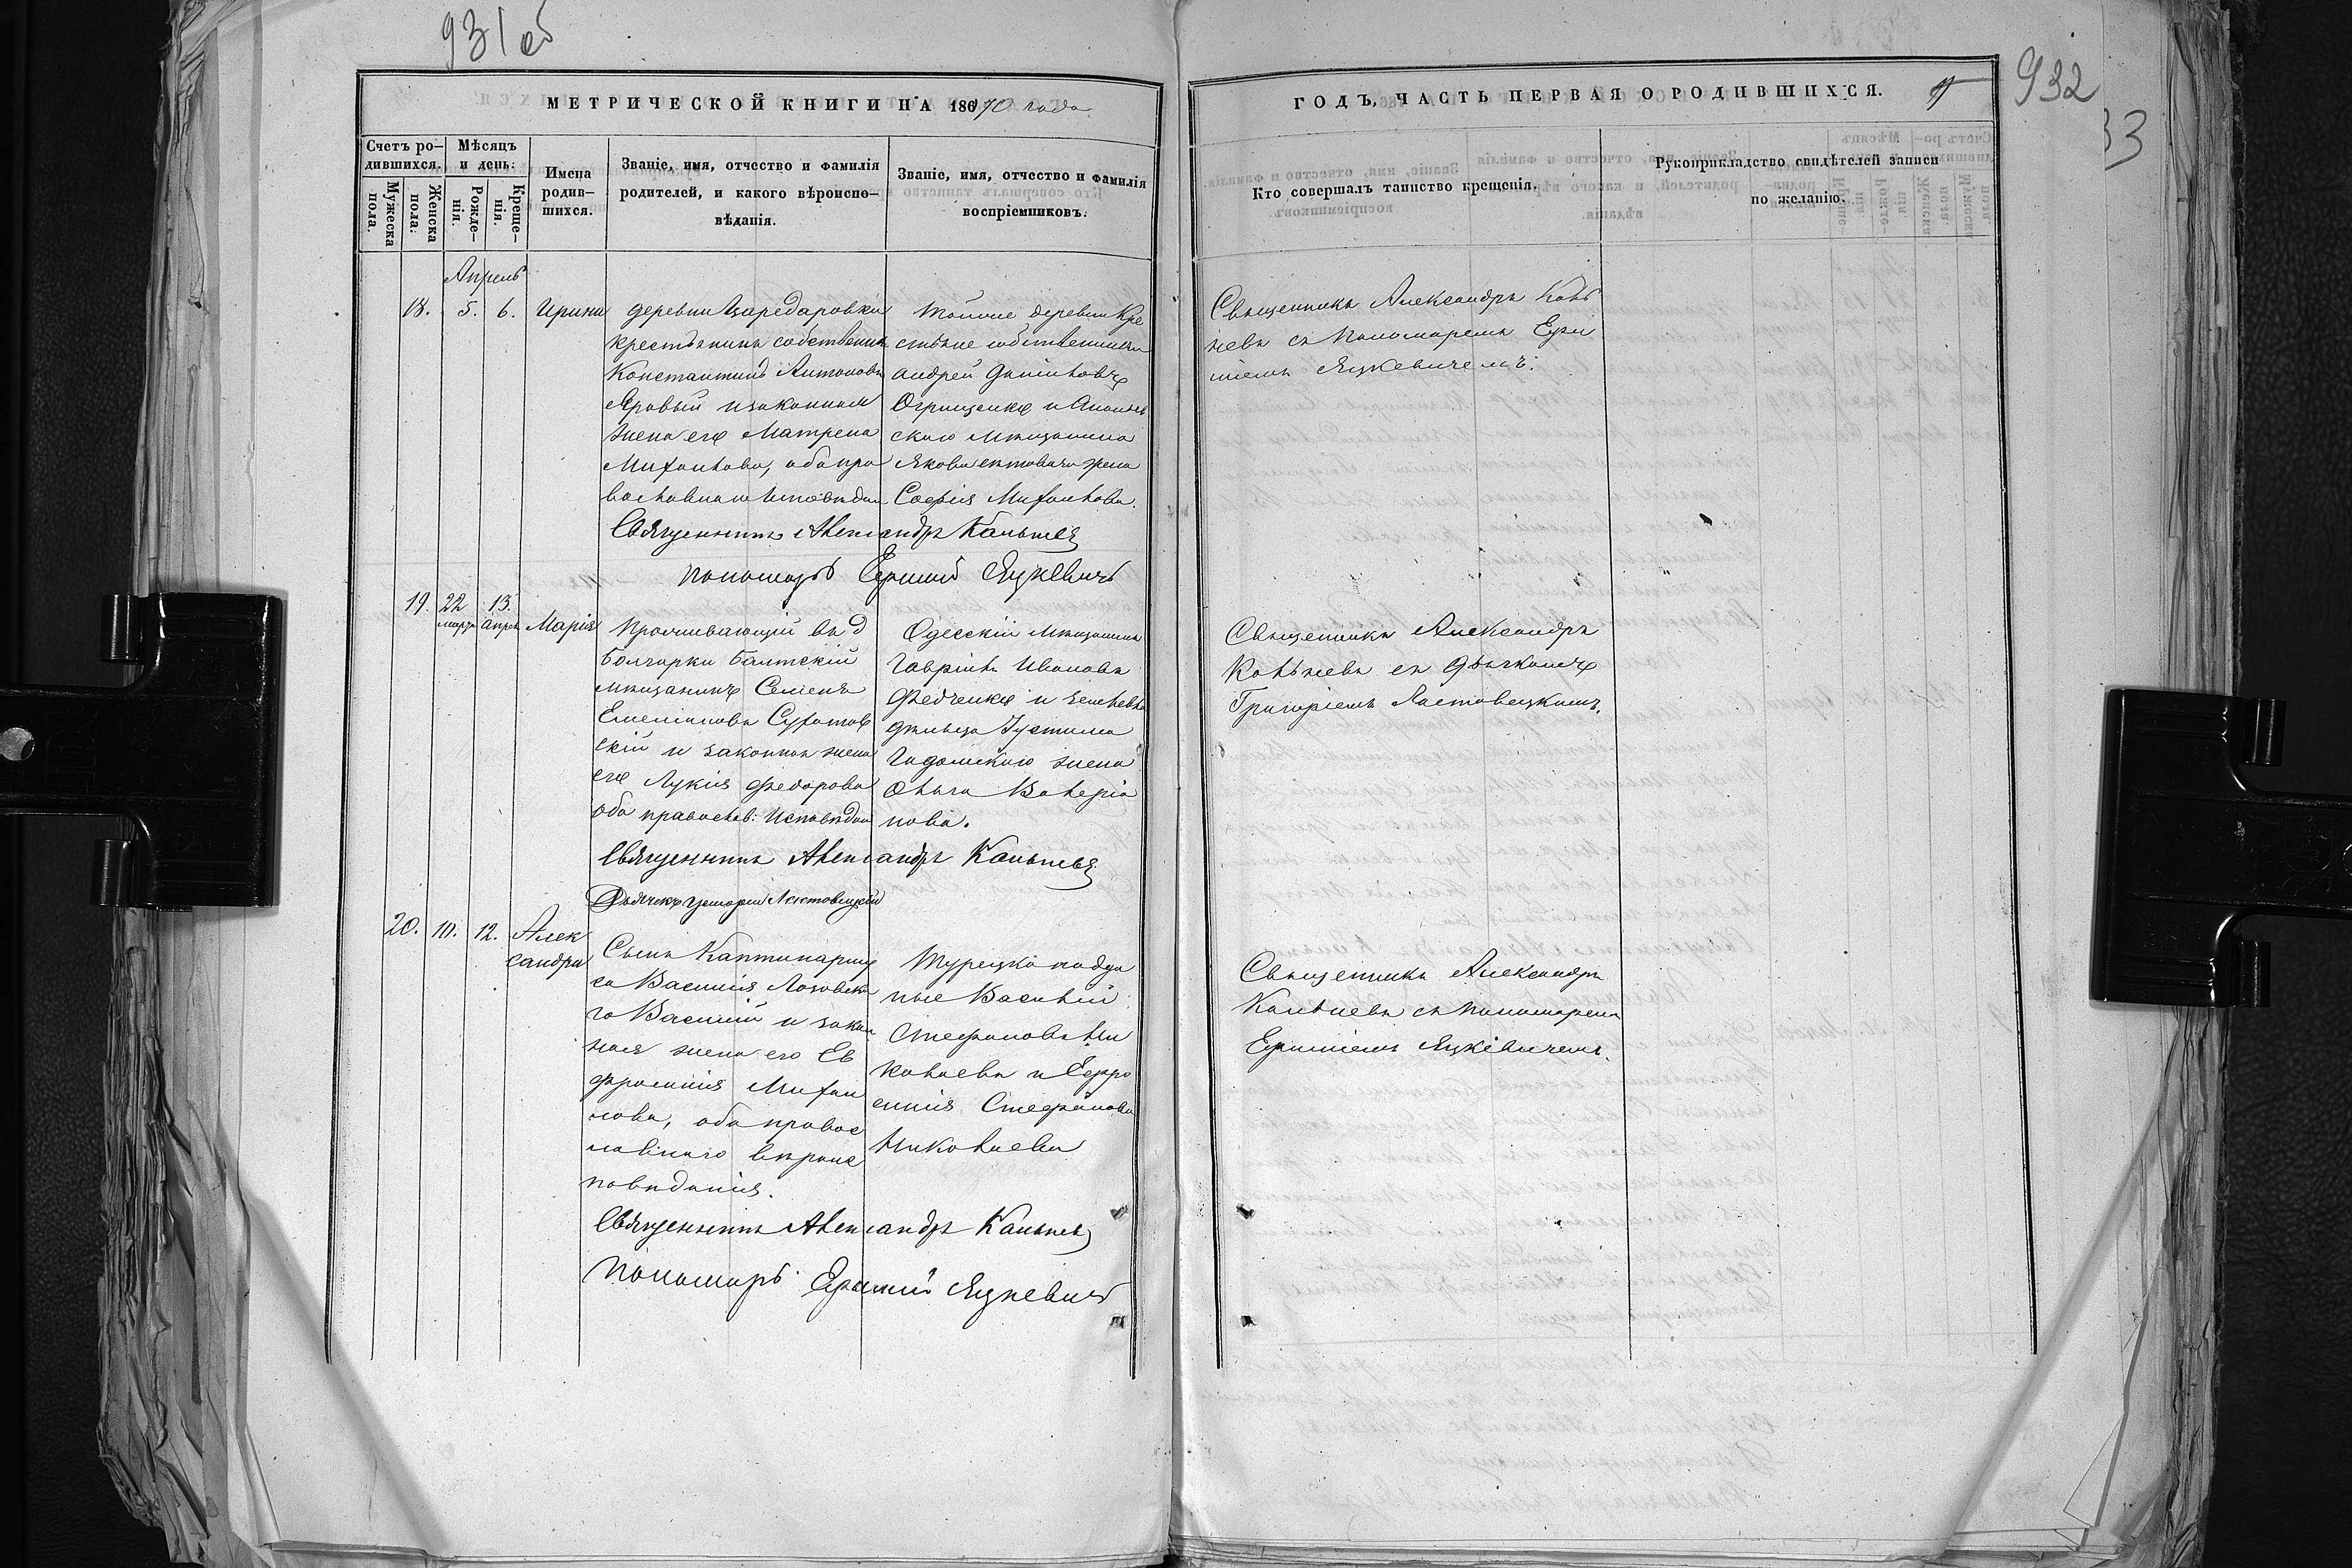 931 об
МЕТРИЧЕСКОЙ КНИГИ НА 1870 года
Счетъ ро-
дившихся.
Мужеска
пола.
Женска
пола.
Мѣсяцъ
и день:
Рожде-
нія.
Креще-
нія.
Имена
родив-
шихся.
Званіе, имя, отчество и фамилія
родителей, и какого вѣроиспо-
вѣданія.
Званіе, имя, отчество и фамилія
воспріемниковъ.
Апрель
18. 5. 6. Ирина
деревни Царедаровки
крестьянинъ собственникъ
Константинъ Антоновъ
Яровый и законная
жена его Матрена
Михаилова, оба пра
вославнаго исповѣдан
тойже деревни Кре
стьяне собственники
Андрей
и Ананьев
скаго мѣщанина
Якова жена
Софія Михаилова.
Священникъ Александръ
пономарь Ефимій Яцкевичъ
19. 22 марта 13. Апрѣл Марія
Проживающій въ д
Болгарки Балтскій
мѣщанинъ Семенъ
Емеліановъ
скій и законная жена
его Лукія Федорова
оба православ: исповѣдан
Одесскій мѣщанинъ
Гавріилъ Ивановъ
Федченко и землевла
дѣльца Іустина
Гадомскаго жена
Ольга Валеріа
нова.
Священникъ Александръ
Дьячекъ Григорій
20. 10. 12. Алек
сандра
Сынъ Каптинариу
са Василія Лозовска
го Василій и закон
ная жена его Ев
фросинія Михаи
лова, оба правос
лавнаго вѣроис
повѣданія.
Турецко поддан
ные Василій
Стефановъ Ни
колаевъ и Ефро
синія Стефанова
Николаева
Священникъ Александръ
Пономарь Ефимій Яцкевичъ
932
33
ГОДЪ, ЧАСТЬ ПЕРВАЯ О РОДИВШИХСЯ.
Кто совершалъ таинство крещенія.
Рукоприкладство свидѣтелей записи
по желанію.
Священникъ Александръ
съ пономаремъ Ефи
міемъ Яцкевичемъ.
Священникъ Александръ
съ дьячкомъ
Григоріемъ
Священникъ Александръ
съ пономаремъ
Ефиміемъ Яцкевичемъ.